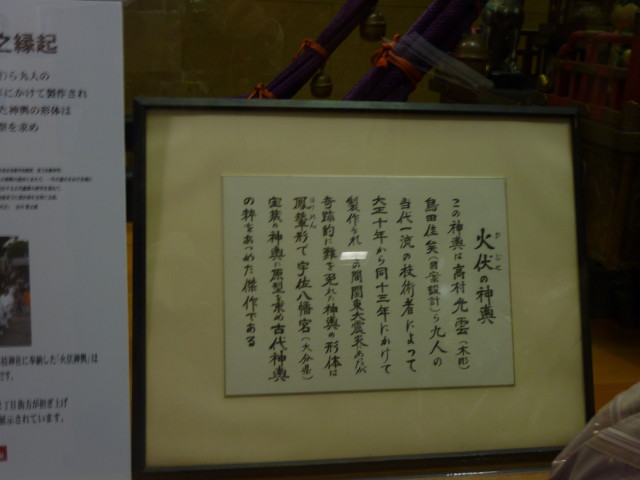 火伏の神輿
かぶせ
この神輿は高村光雲(木彫)
島田佳矣(図案設計)ら九人の
当代一流の技術者によって
大正十年から同十三年にかけて
製作され の間関東大震災あたが
奇跡的に難を免れた神輿の形体は
鳳輦形で宇佐八幡宮(大分県)
ほうれん
宝蔵の神輿に原型を求め古代神輿
の粋をあつめた傑作である
之縁起
ら九人の
にかけて製作され
た神輿の形体は
型を求め
神社に奉納した「火伏神輿」は
です。
丁目街方が担ぎ上げ
展示されています。